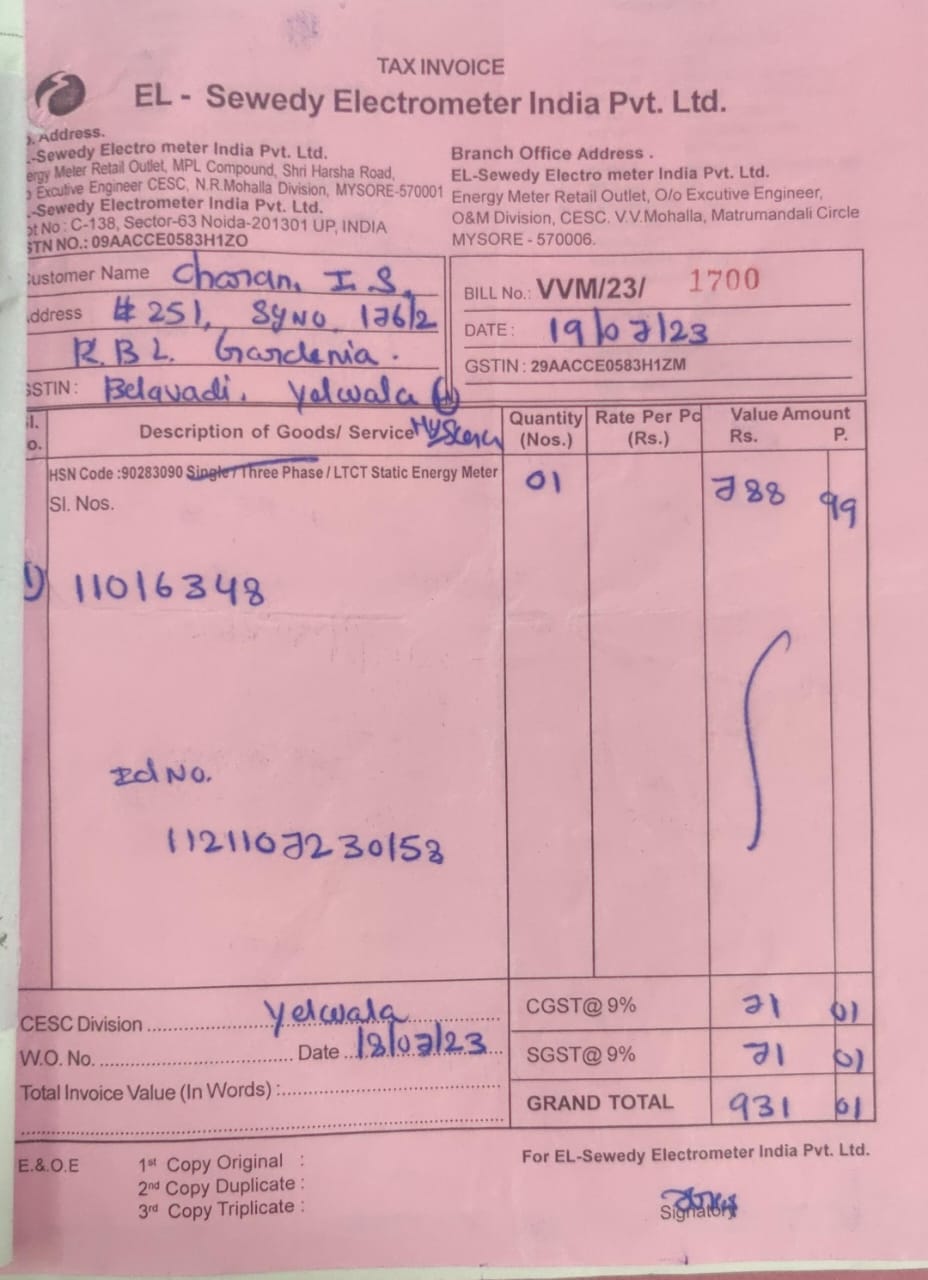 TAX INVOICE
EL - Sewedy Electrometer India Pvt. Ltd.
. Address.
-Sewedy Electro meter India Pvt. Ltd.
ergy Meter Retail Outlet, MPL Compound, Shri Harsha Road,
Excutive Engineer CESC, N.R.Mohalla Division, MYSORE-570001
-Sewedy Electrometer India Pvt. Ltd.
ot No : C-138, Sector-63 Noida-201301 UP, INDIA
STN NO.: 09AACCE0583H1ZO
Branch Office Address .
EL-Sewedy Electro meter India Pvt. Ltd.
Energy Meter Retail Outlet, O/o Excutive Engineer,
O&M Division, CESC. V.V.Mohalla, Matrumandali Circle
MYSORE - 570006.
ustomer Name Charan. I S.
ddress # 251, SY NO 176/2
R.B L. Gardenia.
GSTIN : Belavadi, Yelwala
BILL No.: VVM/23/ 1700
DATE : 19/07/23
GSTIN : 29AACCE0583H1ZM
l. o. Description of Goods/ Service Quantity (Nos.) Rate Per Pc (Rs.) Value Amount Rs. P.
HSN Code :90283090 Single / Three Phase / LTCT Static Energy Meter 01 788 99
Sl. Nos.
1) 11016348
Id No.
1121107230158
CESC Division Yelwala
W.O. No. Date 18/07/23
Total Invoice Value (In Words) :
CGST@ 9% 71 01
SGST@ 9% 71 01
GRAND TOTAL 931 01
E.&.O.E
1st Copy Original :
2nd Copy Duplicate :
3rd Copy Triplicate :
For EL-Sewedy Electrometer India Pvt. Ltd.
Signatory